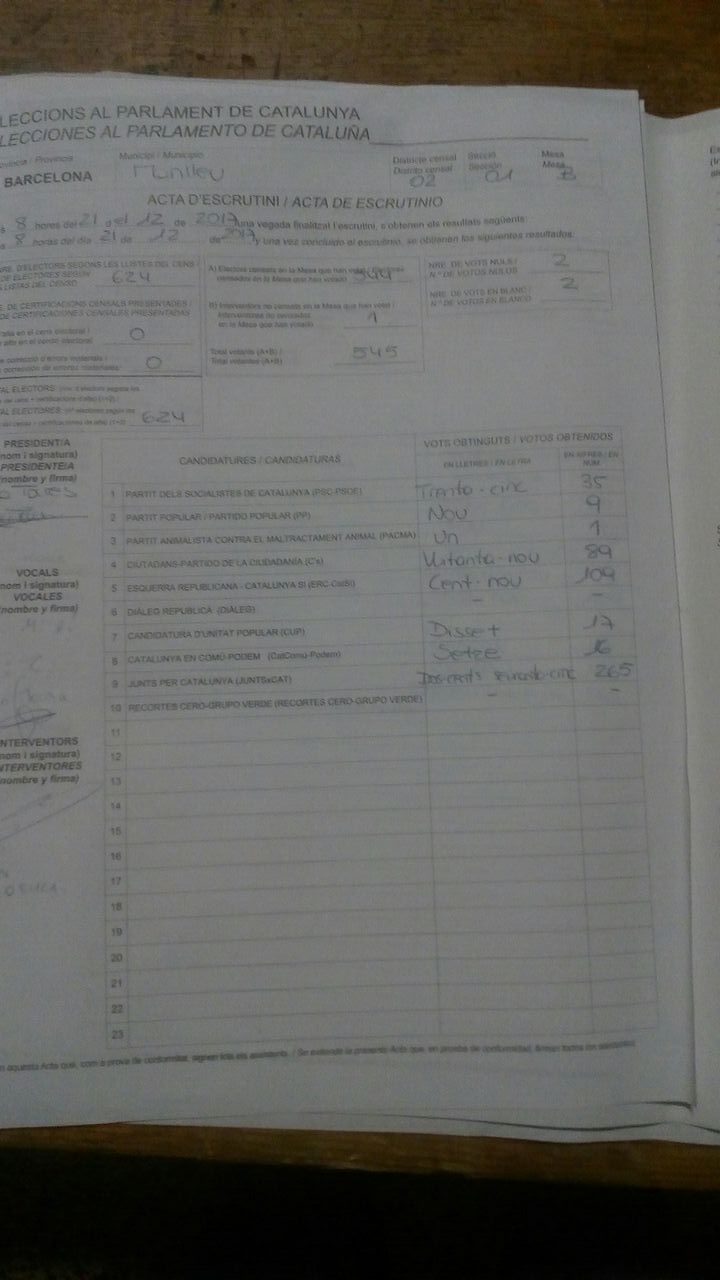 LECCIONS AL PARLAMENT DE CATALUNYA
LECCIONES AL PARLAMENTO DE CATALUÑA
ovíncia / Provincia Municipi / Municipio Districte censal Secció Mesa
Distrito censal Sección Mesa
BARCELONA Manlleu 02 01 B
ACTA D'ESCRUTINI / ACTA DE ESCRUTINIO
s 8 hores del 21 del 12 de 2017 una vegada finalitzat l'escrutini, s'obtenen els resultats següents:
s 8 horas del día 21 de 12 de 2017 y una vez concluido el escrutinio, se obtienen los siguientes resultados:
RE. D'ELECTORS SEGONS LES LLISTES DEL CENS
DE ELECTORES SEGÚN
LISTAS DEL CENSO 624
E. DE CERTIFICACIONS CENSALS PRESENTADES /
DE CERTIFICACIONES CENSALES PRESENTADAS
alta en el cens electoral /
alta en el censo electoral 0
correcció d'errors materials /
corrección de errores materiales 0
AL ELECTORS:
AL ELECTORES: 624
A) Electors censats en la Mesa que han votat
censados en la Mesa que han votado 544
B) Interventors no censats en la Mesa que han votat /
Interventores no censados
en la Mesa que han votado 1
Total votants (A+B) /
Total votantes (A+B) 545
NRE. DE VOTS NULS /
N.º DE VOTOS NULOS 2
NRE. DE VOTS EN BLANC /
N.º DE VOTOS EN BLANCO 2
PRESIDENT/A
nom i signatura)
PRESIDENTE/A
(nombre y firma)
VOCALS
nom i signatura)
VOCALES
(nombre y firma)
INTERVENTORS
nom i signatura)
NTERVENTORES
(nombre y firma)
CANDIDATURES / CANDIDATURAS VOTS OBTINGUTS / VOTOS OBTENIDOS
EN LLETRES / EN LETRA EN XIFRES / EN NÚM.
1 PARTIT DELS SOCIALISTES DE CATALUNYA (PSC-PSOE) Trenta-cinc 35
2 PARTIT POPULAR / PARTIDO POPULAR (PP) Nou 9
3 PARTIT ANIMALISTA CONTRA EL MALTRACTAMENT ANIMAL (PACMA) Un 1
4 CIUTADANS-PARTIDO DE LA CIUDADANÍA (C's) Vuitanta-nou 89
5 ESQUERRA REPUBLICANA - CATALUNYA SÍ (ERC-CatSí) Cent-nou 109
6 DIÀLEG REPUBLICÀ (DIÀLEG) - -
7 CANDIDATURA D'UNITAT POPULAR (CUP) Disset 17
8 CATALUNYA EN COMÚ-PODEM (CatComú-Podem) Setze 16
9 JUNTS PER CATALUNYA (JUNTSxCAT) Dos-cents seixanta-cinc 265
10 RECORTES CERO-GRUPO VERDE (RECORTES CERO-GRUPO VERDE) - -
11
12
13
14
15
16
17
18
19
20
21
22
23
n aquesta Acta que, com a prova de conformitat, signen tots els assistents. / Se extiende la presente Acta que, en prueba de conformidad, firman todos los asistentes